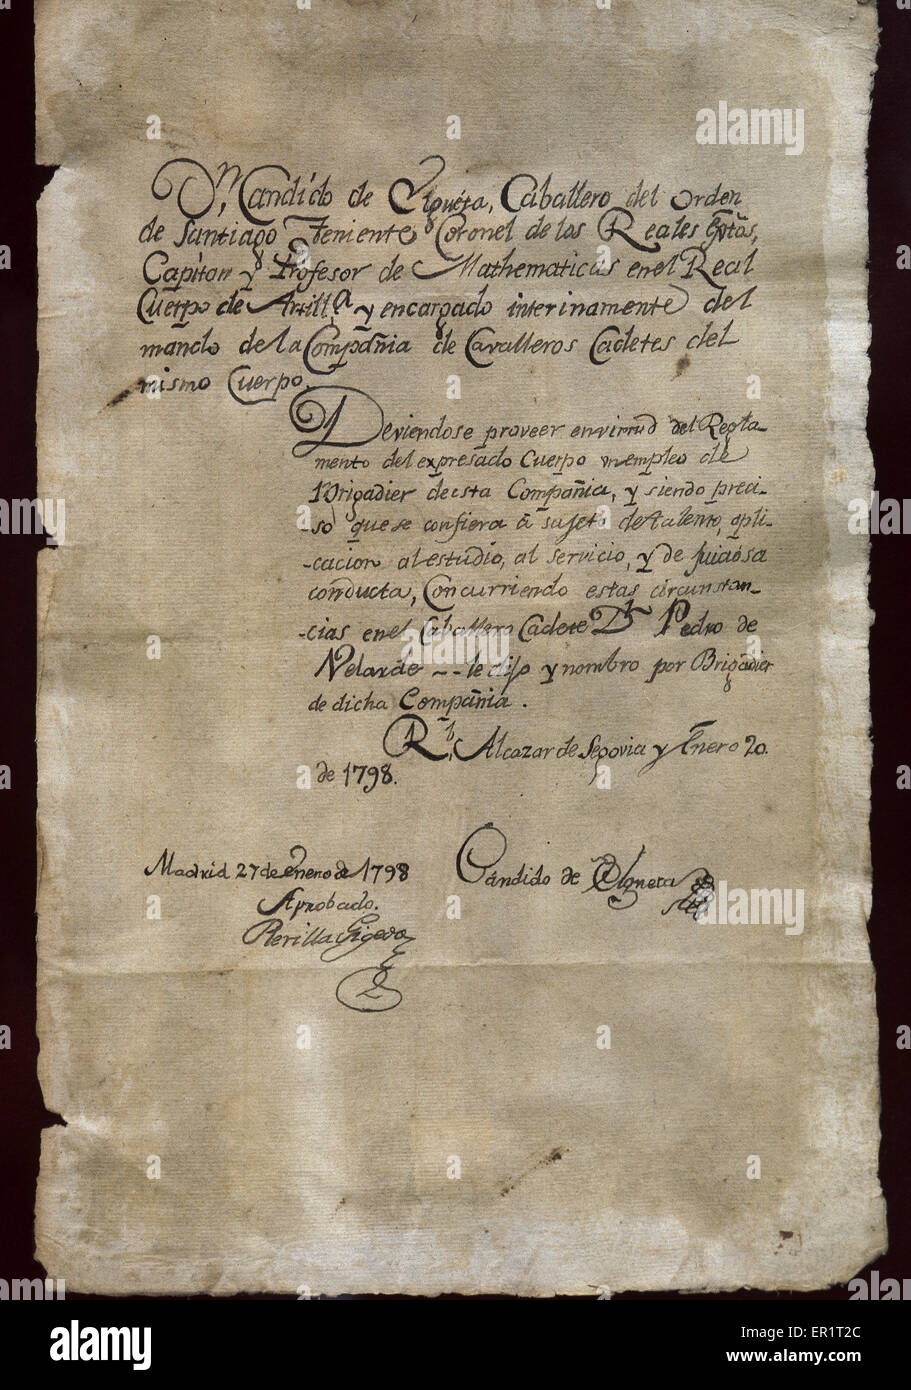 Dn. Candido de Elgueta, Caballero del Orden
de Santiago Teniente Coronel de los Reales Extos,
Capitan y Profesor de Mathematicas en el Real
Cuerpo de Artilla. y encargado interinamente del
mando de la Compañia de Cavalleros Cadetes del
mismo Cuerpo.
Deviendose proveer en virtud del Regla-
mento del expresado Cuerpo un empleo de
Brigadier de esta Compañia, y siendo preci-
-so que se confiera á sujeto de talento, apli-
-cacion al estudio, al servicio, y de juiciosa
conducta, Concurriendo estas circunstan-
-cias en el Caballero Cadete Dn. Pedro de
Velarde -- le elijo y nombro por Brigadier
de dicha Compañia.
Rl. Alcazar de Segovia y Enero 20.
de 1798.
Madrid 27 de Enero de 1798
Aprobado.
Revilla Gigedo
Cándido de Elgueta
alamy
a
alamy stock photo
ER1T2C
www.alamy.com